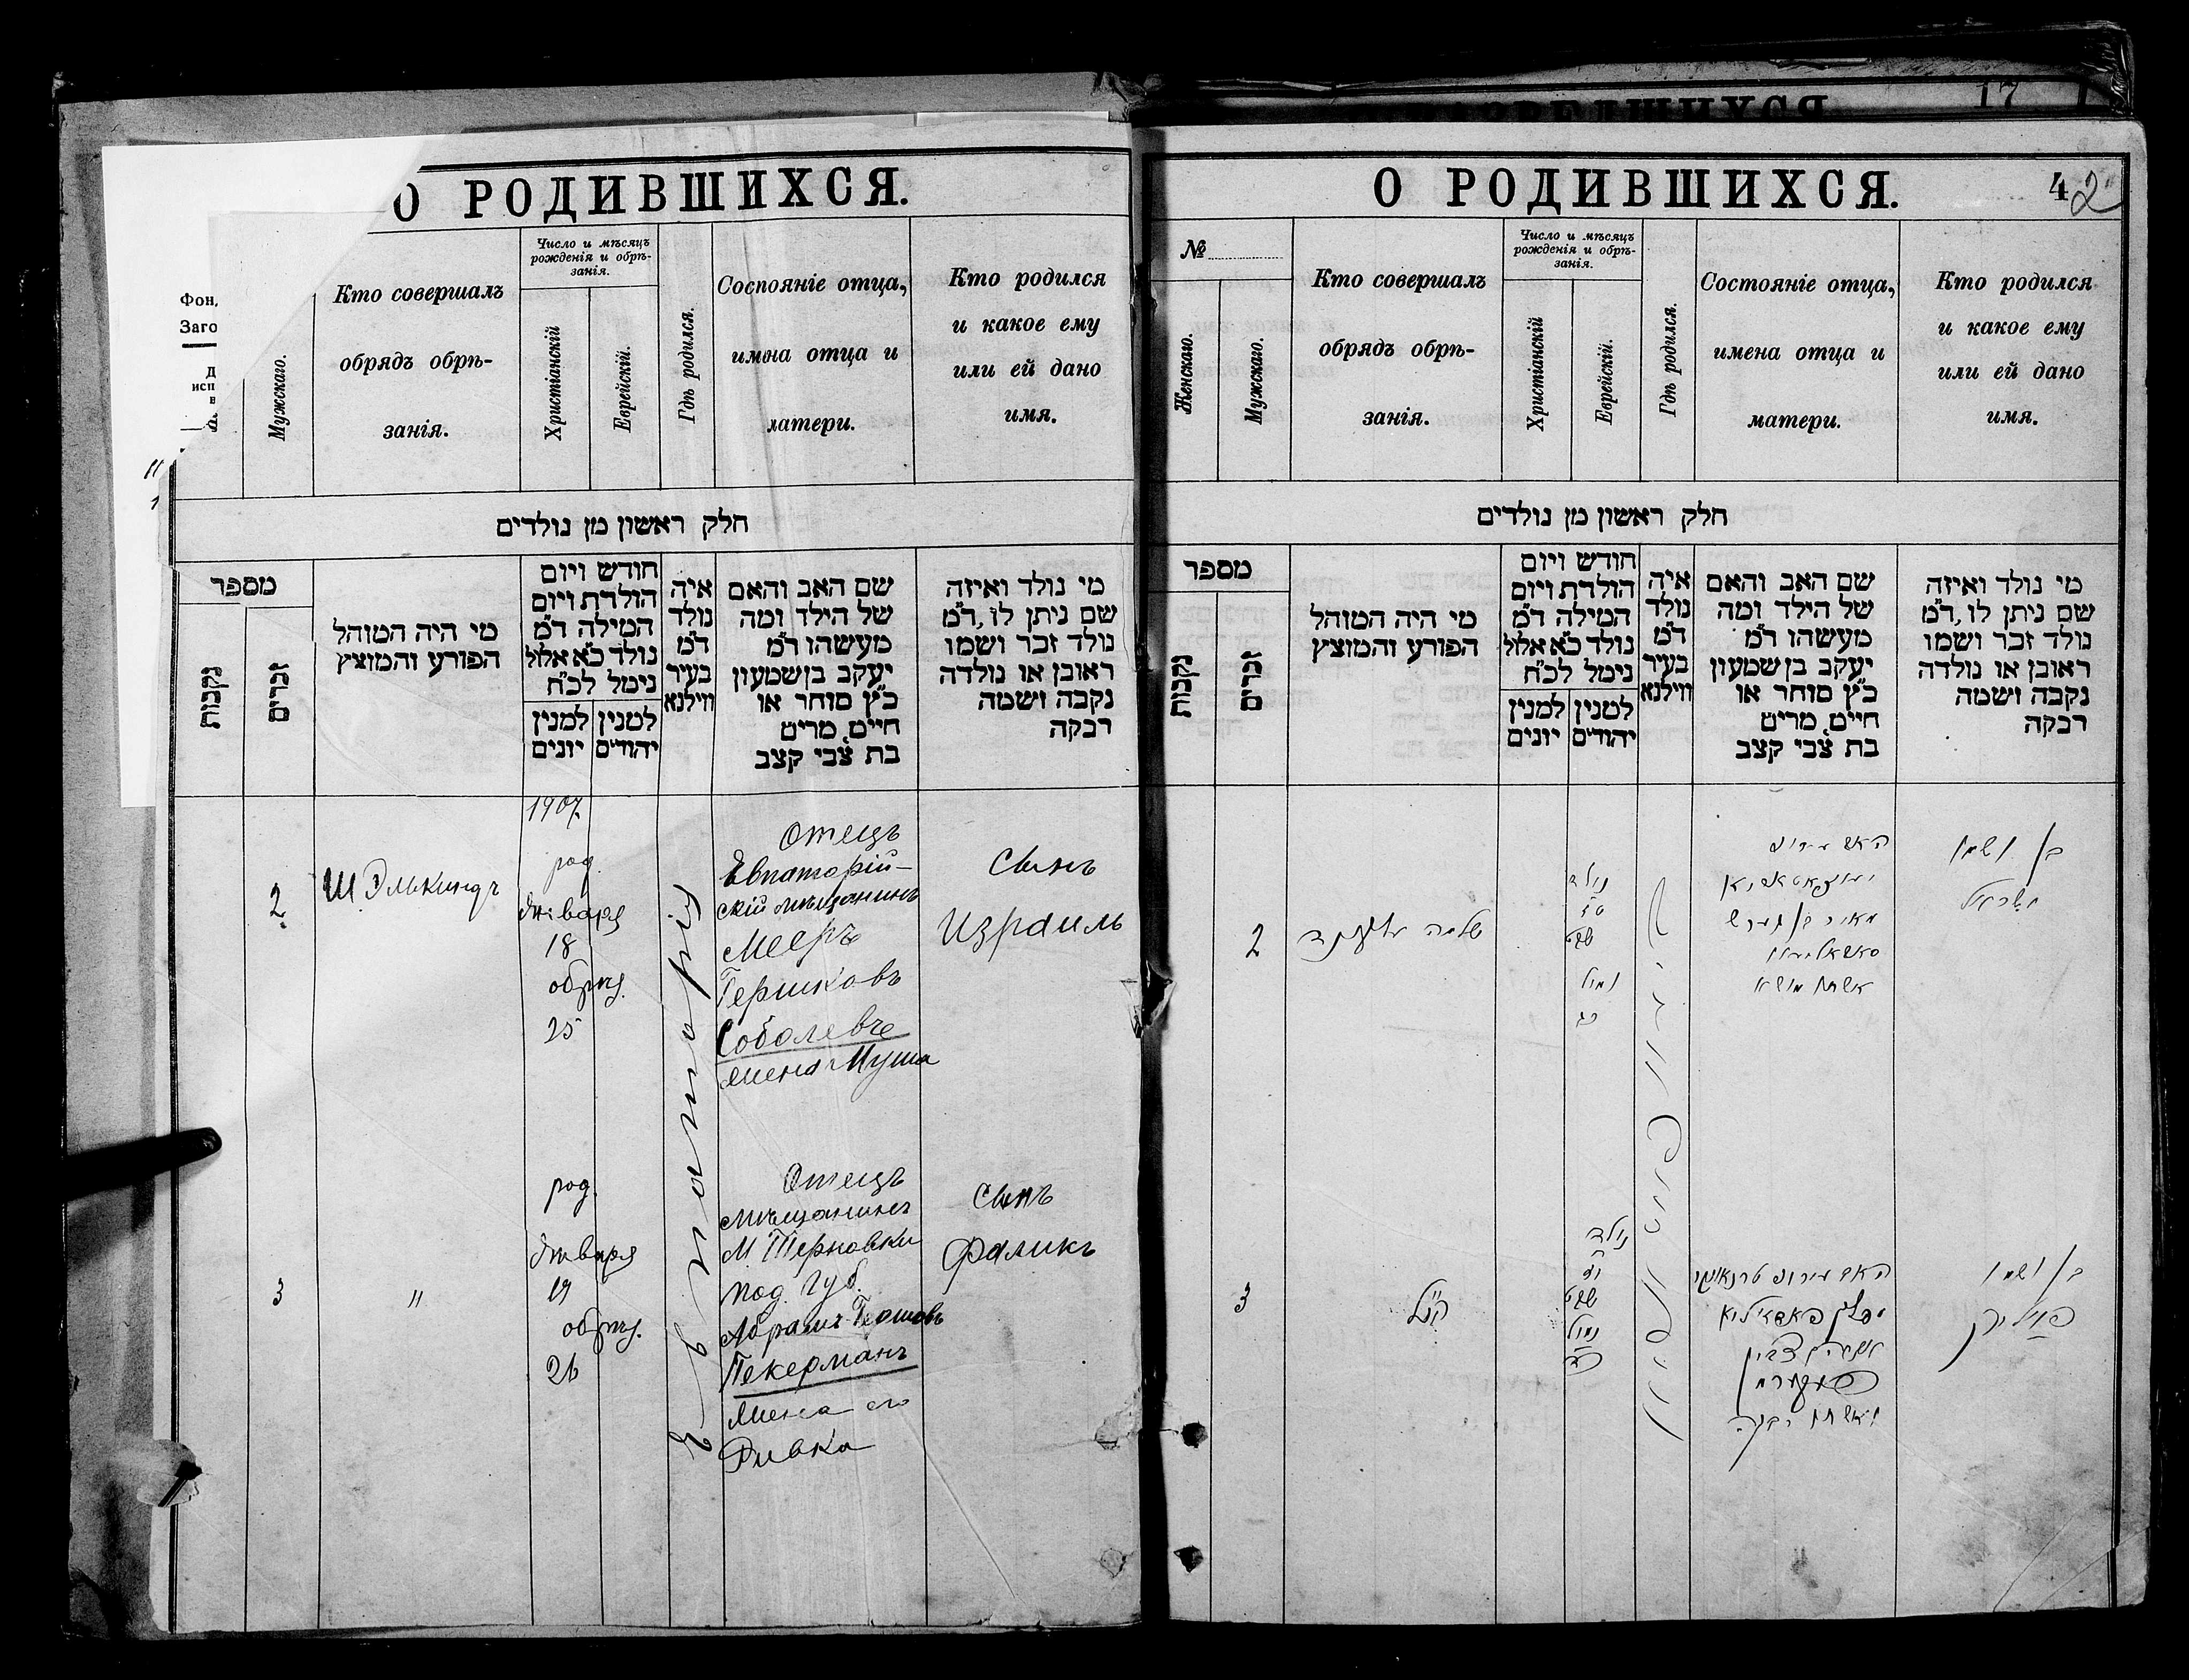 17
О РОДИВШИХСЯ.
Фон
Заго
Д
исп
в
Мужскаго.
Кто совершалъ
обрядъ обрѣ-
занія.
Число и мѣсяцъ
рожденія и обрѣ-
занія.
Христіанскій
Еврейскій.
Гдѣ родился.
Состояніе отца,
имена отца и
матери.
Кто родился
и какое ему
или ей дано
имя.
חלק ראשון מן נולדים
מספר
נקבות
זכרים
מי היה המוהל
הפורע והמוצץ
חודש ויום
הולדת ויום
המילה ד"מ
נולד כ"א אלול
נימל לכ"ח
למנין
יונים
למנין
יהודים
איה
נולד
ד"מ
בעיר
ווילנא
שם האב והאם
של הילד ומה
מעשהו ד"מ
יעקב בן שמעון
כ"ץ סוחר או
חיים, מרים
בת צבי קצב
מי נולד ואיזה
שם ניתן לו, ד"מ
נולד זכר ושמו
ראובן או נולדה
נקבה ושמה
רבקה
2
Ш Элькиндъ
1907.
род.
Января
18
обрѣз.
25
Евпаторія
Отецъ
Евпаторій-
скій мѣщанинъ
Мееръ
Гершковъ
Соболевъ
жена Муша
Сынъ
Израиль
3
"
род.
Января
19
обрѣз.
26
Отецъ
мѣщанинъ
М. Терновки
Под. Губ.
Абрамъ Гершовъ
Пекерманъ
жена его
Ривка
Сынъ
Фаликъ
О РОДИВШИХСЯ.
42
№
Женскаго.
Мужскаго.
Кто совершалъ
обрядъ обрѣ-
занія.
Число и мѣсяцъ
рожденія и обрѣ-
занія.
Христіанскій
Еврейскій.
Гдѣ родился.
Состояніе отца,
имена отца и
матери.
Кто родился
и какое ему
или ей дано
имя.
חלק ראשון מן נולדים
מספר
נקבות
זכרים
מי היה המוהל
הפורע והמוצץ
חודש ויום
הולדת ויום
המילה ד"מ
נולד כ"א אלול
נימל לכ"ח
למנין
יונים
למנין
יהודים
איה
נולד
ד"מ
בעיר
ווילנא
שם האב והאם
של הילד ומה
מעשהו ד"מ
יעקב בן שמעון
כ"ץ סוחר או
חיים, מרים
בת צבי קצב
מי נולד ואיזה
שם ניתן לו, ד"מ
נולד זכר ושמו
ראובן או נולדה
נקבה ושמה
רבקה
2
שלמה עלקינד
נולד
שבט
נמול
מאיר בן הערש
סאבאליעוו
אשתו מושא
בן ושמו
ישראל
3
הנ"ל
נולד
שבט
נמול
פעקערמאן
ואשתו רבקה
בן ושמו
פאליק